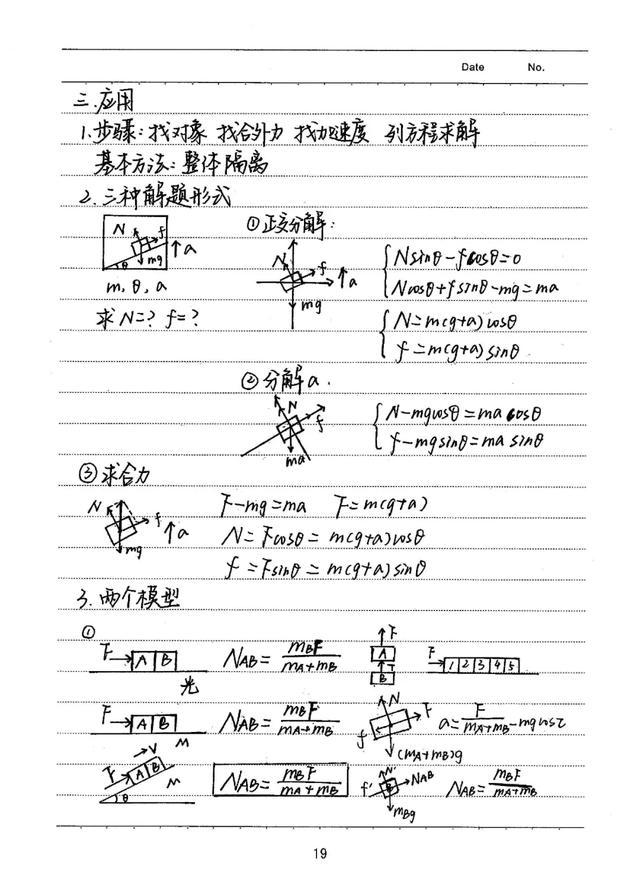 Date No.
三.应用
1.步骤:找对象 找合外力 找加速度 列方程求解
基本方法:整体 隔离
2.三种解题形式
N f a θ mg
m, θ, a
求 N=? f=?
①正交分解:
N f a mg
Nsinθ-fcosθ=0
Ncosθ+fsinθ-mg=ma
N=m(g+a)cosθ
f=m(g+a)sinθ
②分解a.
N f ma
N-mgcosθ=ma cosθ
f-mgsinθ=ma sinθ
③求合力
N f a mg
F-mg=ma F=m(g+a)
N=Fcosθ=m(g+a)cosθ
f=Fsinθ=m(g+a)sinθ
3.两个模型
①
F A B 光
N_AB=m_BF/(m_A+m_B)
F A T B
F 1 2 3 4 5
F A B M
N_AB=m_BF/(m_A+m_B)
N F f (m_A+m_B)g
F A B V M θ
N_AB=m_BF/(m_A+m_B)
N' f' B N_AB m_Bg
N_AB=m_BF/(m_A+m_B)
19